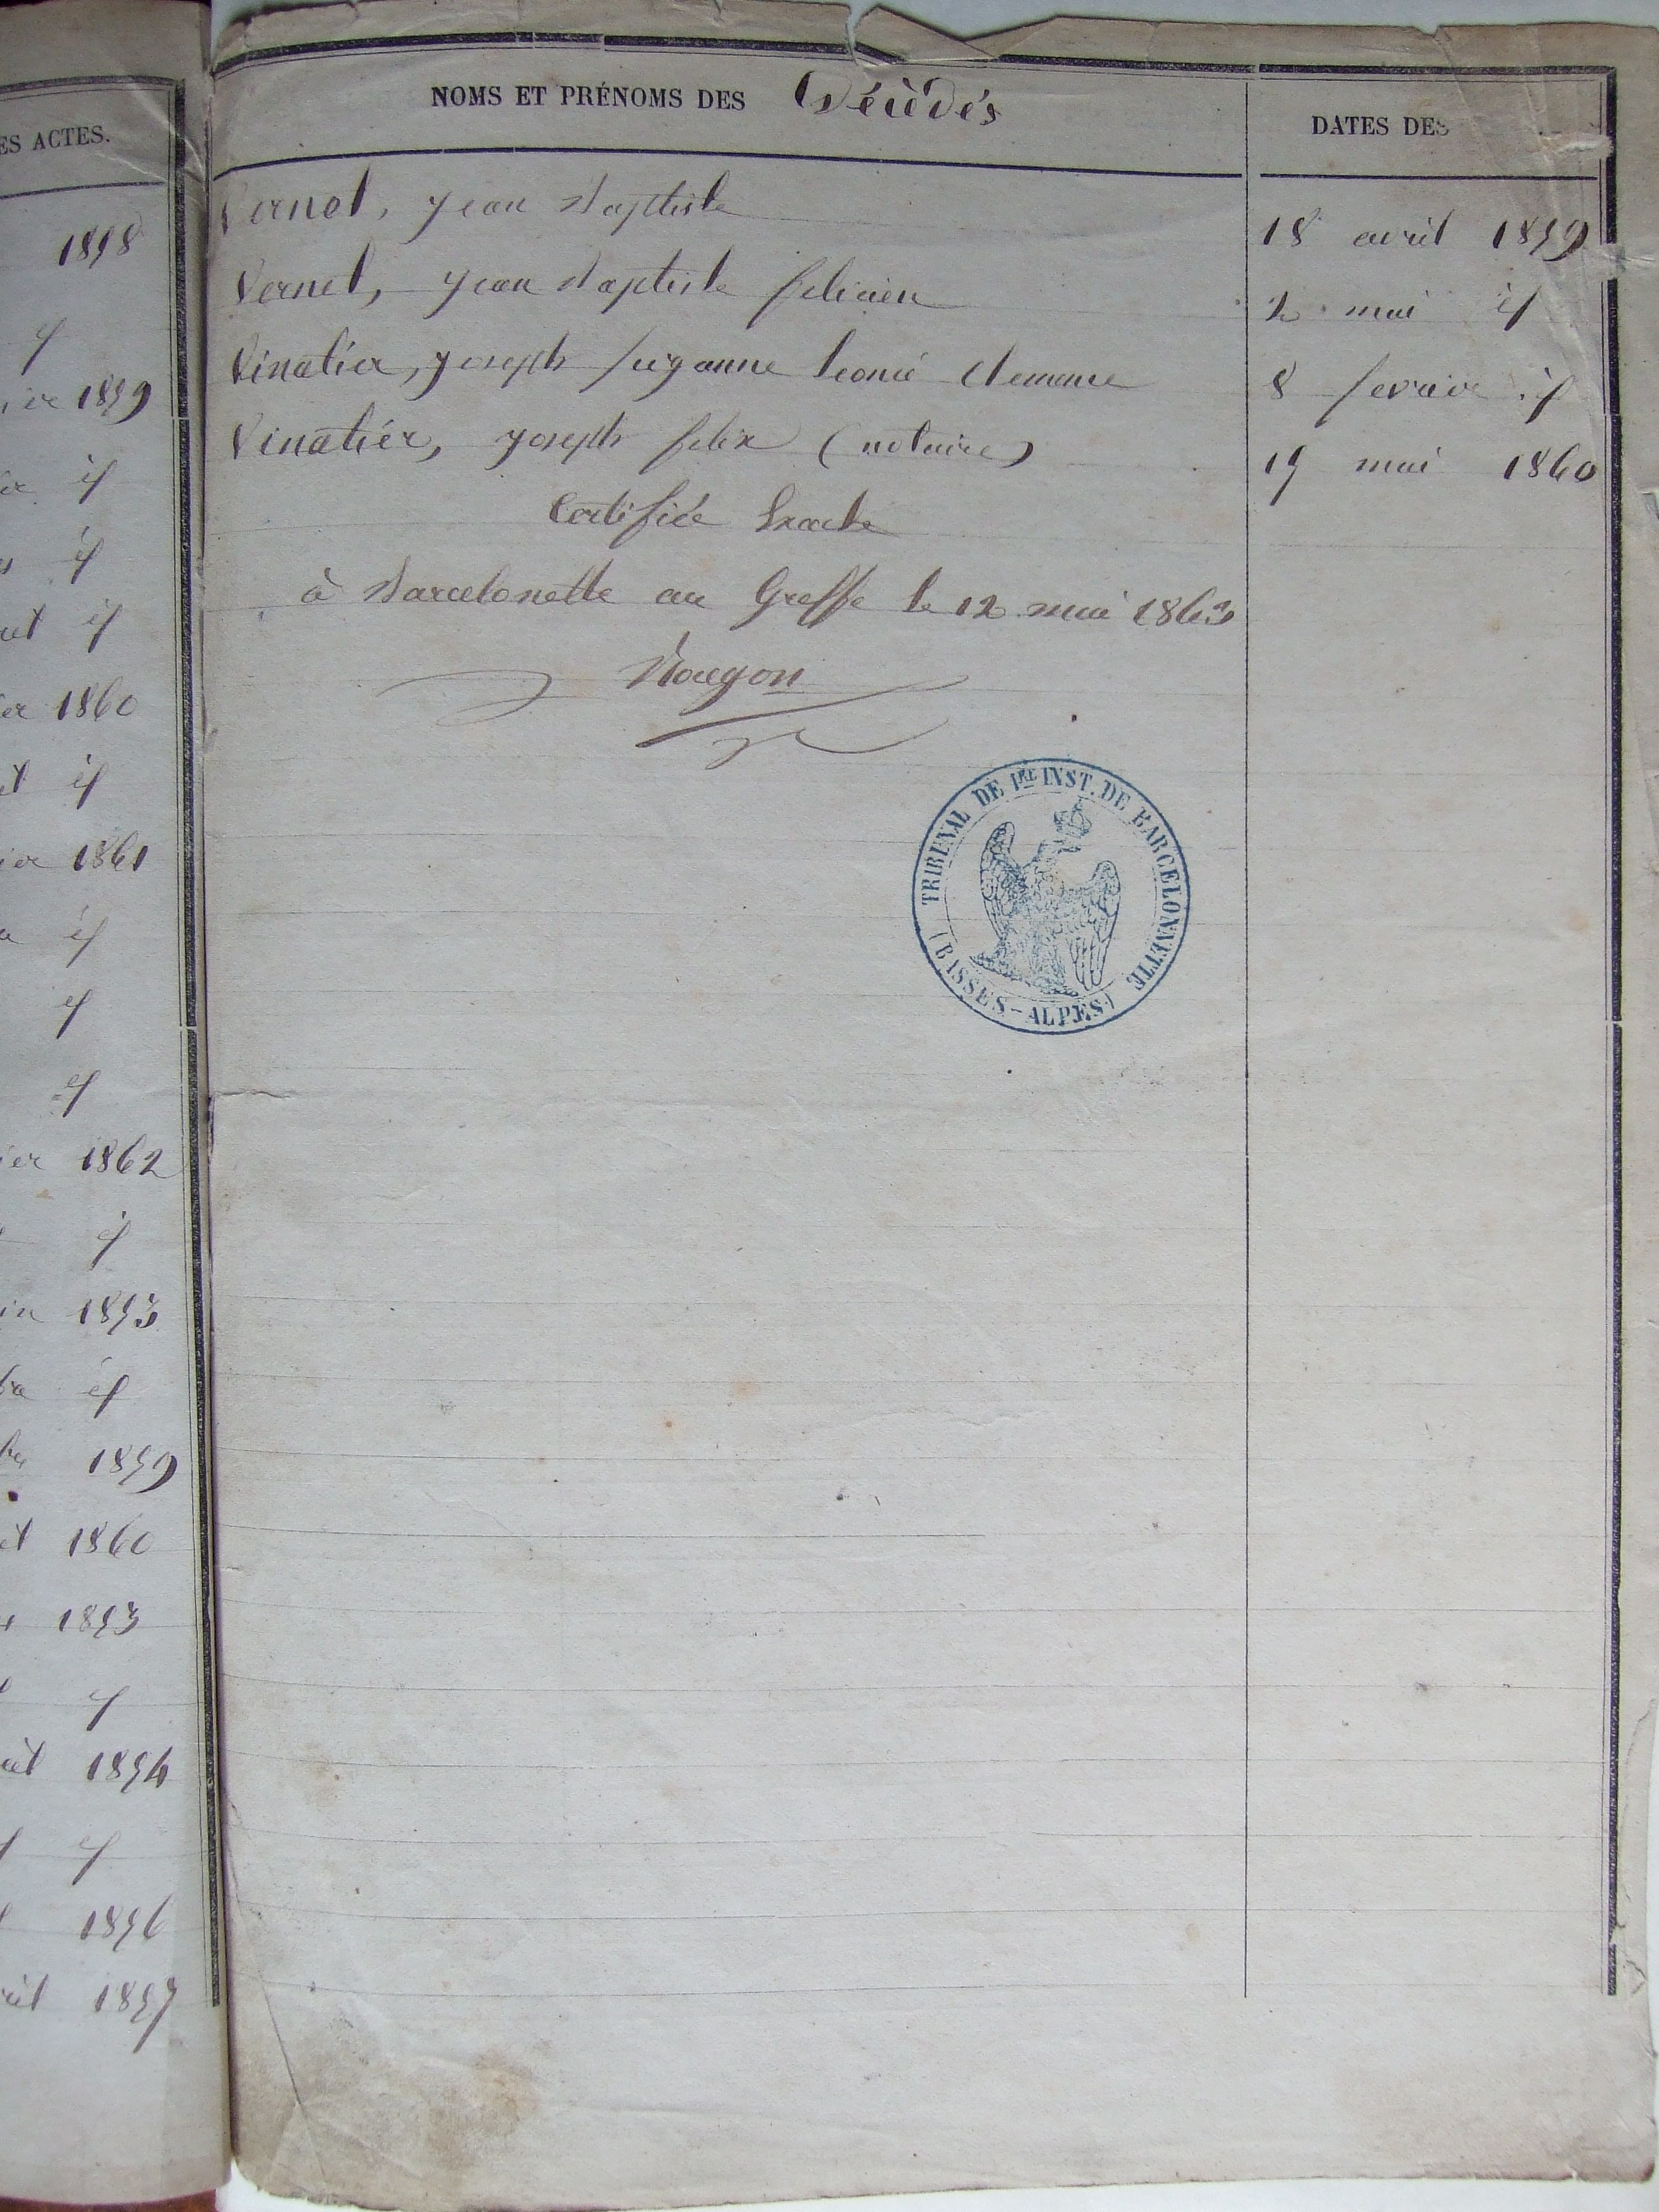 ES ACTES.
1858
id
ier 1859
id
id
id
1860
id
1861
id
id
id
ier 1862
id
1853
id
1859
1860
1853
id
1854
id
1856
1857
NOMS ET PRÉNOMS DES Décédés
DATES DES
Vernet, Jean Baptiste 18 avril 1859
Vernet, Jean Baptiste felicien 2 mai id
Vinatier, Joseph Suzanne Leonie Clemence 8 fevrier id
Vinatiér, Joseph felix (notaire) 15 mai 1860
Certifiée Exacte
à Barcelonette au Greffe le 12 mai 1863
Rougon
TRIBUNAL DE 1RE INST. DE BARCELONNETTE
(BASSES-ALPES)